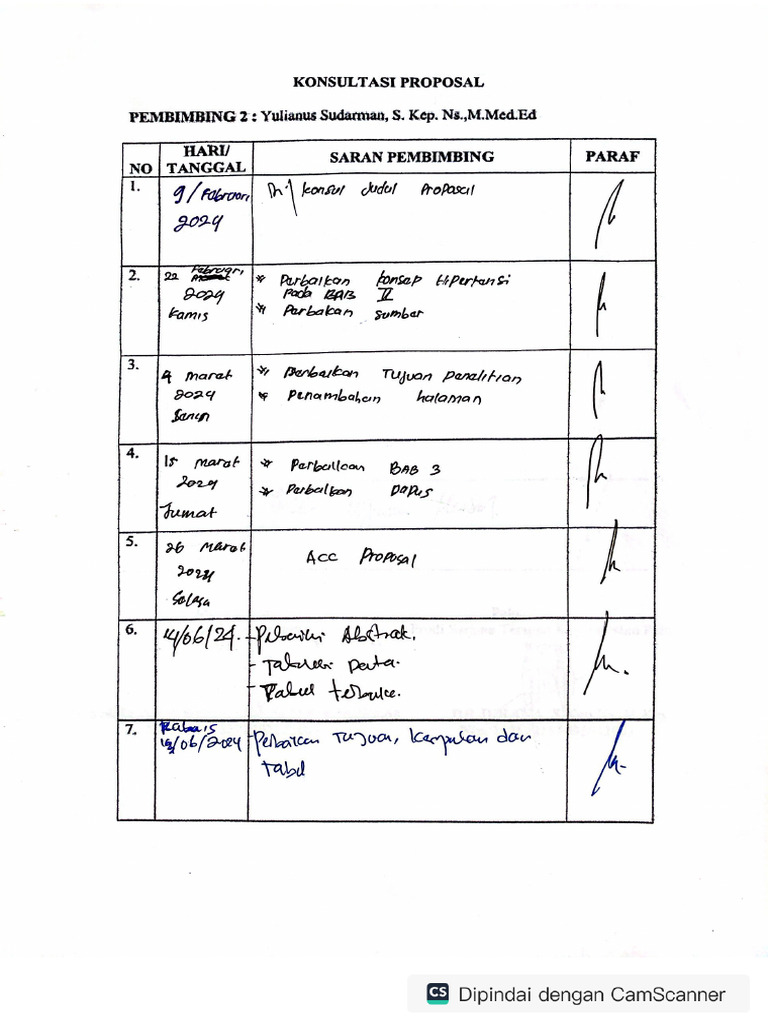 KONSULTASI PROPOSAL
PEMBIMBING 2 : Yulianus Sudarman, S. Kep. Ns.,M.Med.Ed
NO HARI/ TANGGAL SARAN PEMBIMBING PARAF
1. 9/Februari 2024
Konsul Judul Proposal
2. 22 Februari, 2024 Kamis
* Perbaikan Konsep Hipertensi
pada BAB II
* Perbaikan sumber
3. 4 Maret 2024 Senin
* Perbaikan Tujuan Penelitian
* Penambahan halaman
4. 15 Maret 2024 Jumat
* Perbaikan BAB 3
* Perbaikan Dapus
5. 26 Maret 2024 Selasa
Acc Proposal
6. 14/06/24.
- Abstrak.
- Data.
- Tabel terbuka.
7. /06/2024
- Perbaikan Tujuan, dan
Tabel
CS Dipindai dengan CamScanner